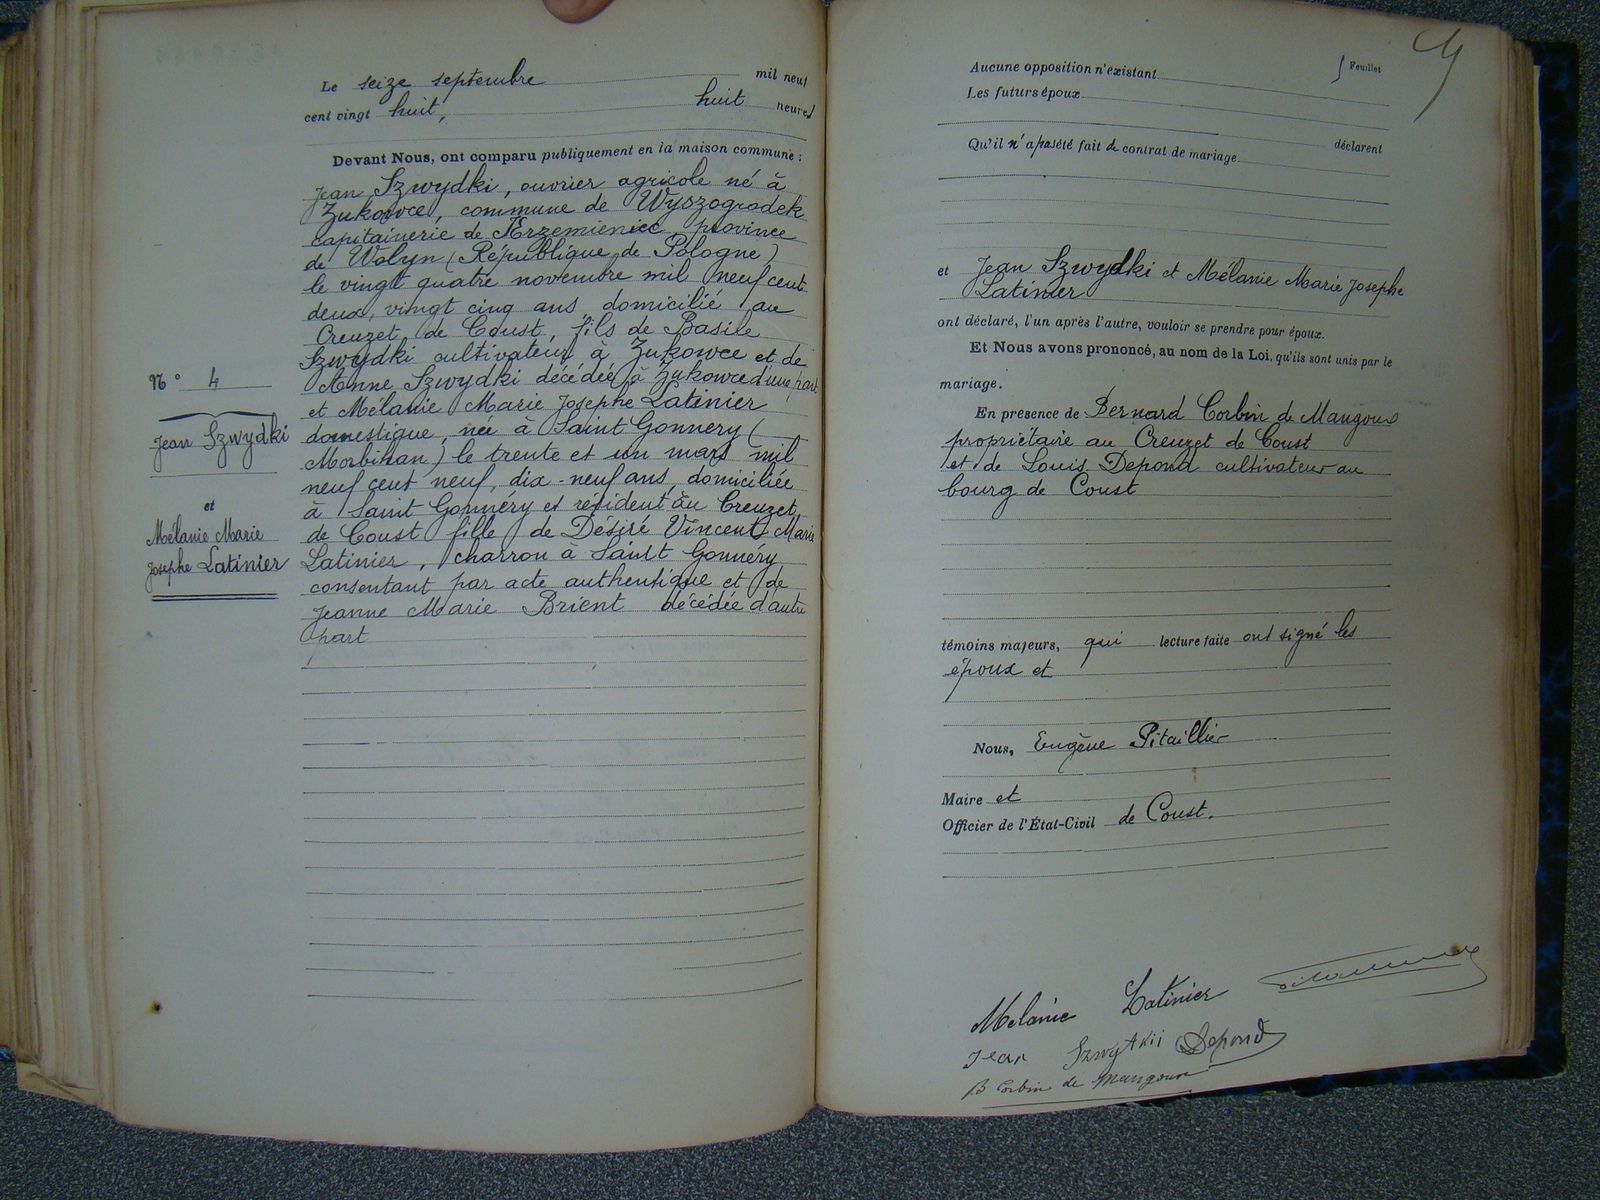 Le seize septembre mil neuf
cent vingt huit, huit heures
Devant Nous, ont comparu publiquement en la maison commune :
Jean Szwydki, ouvrier agricole né à
Zukowce, commune de Wyszogrodek
capitainerie de Krzemieniec province
de Wolyn (République de Pologne)
le vingt quatre novembre mil neuf cent
deux, vingt cinq ans, domicilié au
Creuzet de Coust, fils de Basile
Szwydki cultivateur à Zukowce et de
Anne Szwydki décédée à Zukowce d'une part
et Mélanie Marie Josephe Latinier
domestique, née à Saint Gonnery (
Morbihan) le trente et un mars mil
neuf cent neuf, dix-neuf ans, domiciliée
à Saint Gonnéry et résident au Creuzet
de Coust fille de Désiré Vincent Marie
Latinier, charron à Saint Gonnéry
consentant par acte authentique et de
Jeanne Marie Brient décédée d'autre
part
N° 4
Jean Szwydki
et
Mélanie Marie
Josephe Latinier
Feuillet
Aucune opposition n'existant
Les futurs époux
déclarent
Qu'il n'a pas été fait de contrat de mariage
et Jean Szwydki et Mélanie Marie Josephe
Latinier
ont déclaré, l'un après l'autre, vouloir se prendre pour époux.
Et Nous avons prononcé, au nom de la Loi, qu'ils sont unis par le
mariage.
En présence de Bernard Corbin de Mangoux
propriétaire au Creuzet de Coust
et de Louis Depond cultivateur au
bourg de Coust
témoins majeurs, qui lecture faite ont signé les
époux et
Nous, Eugène Pitaillier
Maire et
Officier de l'État-Civil de Coust.
Melanie Latinier
Jean Szwytkii Depond
B Corbin de Mangoux